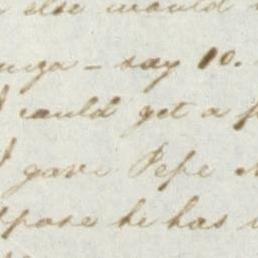 else would
- say 10.
I could get a
I gave Pepe
ppose he has